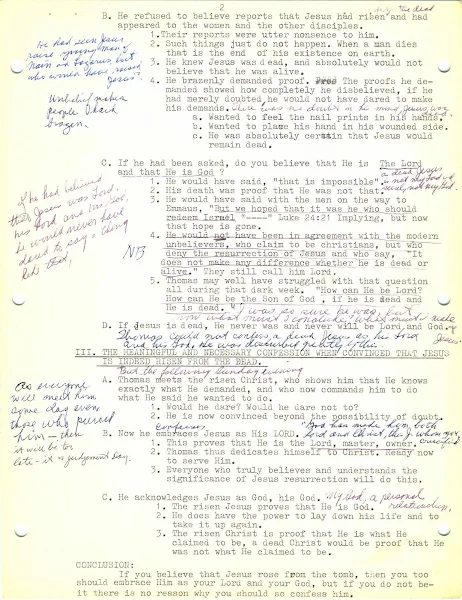 2
B. He refused to believe reports that Jesus had risen and had
appeared to the women and the other disciples.
1. Their reports were utter nonsense to him.
2. Such things just do not happen. When a man dies
that is the end of his existence on earth.
3. He knew Jesus was dead, and absolutely would not
believe that he was alive.
4. He brazenly demanded proof. The proofs he de-
manded showed how completely he disbelieved, if he
had merely doubted he would not have dared to make
his demands.
a. Wanted to feel the nail prints in his hands.
b. Wanted to place his hand in his wounded side.
c. He was absolutely certain that Jesus would
remain dead.
He had seen Jesus
raise young man
Nain
Unbelief makes
people
brazen.
C. If he had been asked, do you believe that He is The Lord
and that He is God?
1. He would have said, "that is impossible".
2. His death was proof that He was not that.
3. He would have said with the men on the way to
Emmaus, "But we hoped that it was he who should
redeem Israel -----" Luke 24:21 Implying, but now
that hope is gone.
4. He would not have been in agreement with the modern
unbelievers, who claim to be christians, but who
deny the resurrection of Jesus and who say, "It
does not make any difference whether he is dead or
alive." They still call him Lord.
5. Thomas may well have struggled with that question
all during that dark week. "How can He be Lord?
How can He be the Son of God , if he is dead and
He is dead."
a dead Jesus
If he had believed
that Jesus was Lord
his Lord and his God,
he would never have
dared to say a thing
like that.
NB
D. If Jesus is dead, He never was and never will be Lord and God.
Thomas could not confess a dead Jesus as his Lord
and his God, He was
III. THE MEANINGFUL AND NECESSARY CONFESSION WHEN CONVINCED THAT JESUS
IS INDEED RISEN FROM THE DEAD.
But the following Sunday evening
A. Thomas meets the risen Christ, who shows him that He knows
exactly what He demanded, and who now commands him to do
what He said he wanted to do.
1. Would he dare? Would he dare not to?
2. He is now convinced beyond the possibility of doubt.
confesses
B. Now he embraces Jesus as His LORD.
"God has made him both
Lord and Christ, this Jesus whom you crucified
1. This proves that He is the Lord, master, owner.
2. Thomas thus dedicates himself to Christ. Ready now
to serve Him.
3. Everyone who truly believes and understands the
significance of Jesus resurrection will do this.
As everyone
will meet him
some day even
those who pierced
him - then
it will be too
late - it is judgement day.
C. He acknowledges Jesus as God, his God. My God, a personal
relationship.
1. The risen Jesus proves that He is God.
2. He does have the power to lay down his life and to
take it up again.
3. The risen Christ is proof that He is what He
claimed to be, a dead Christ would be proof that He
was not what He claimed to be.
CONCLUSION:
If you believe that Jesus rose from the tomb, then you too
should embrace Him as your Lord and your God, but if you do not be-
lieve it there is no reason why you should so confess him.